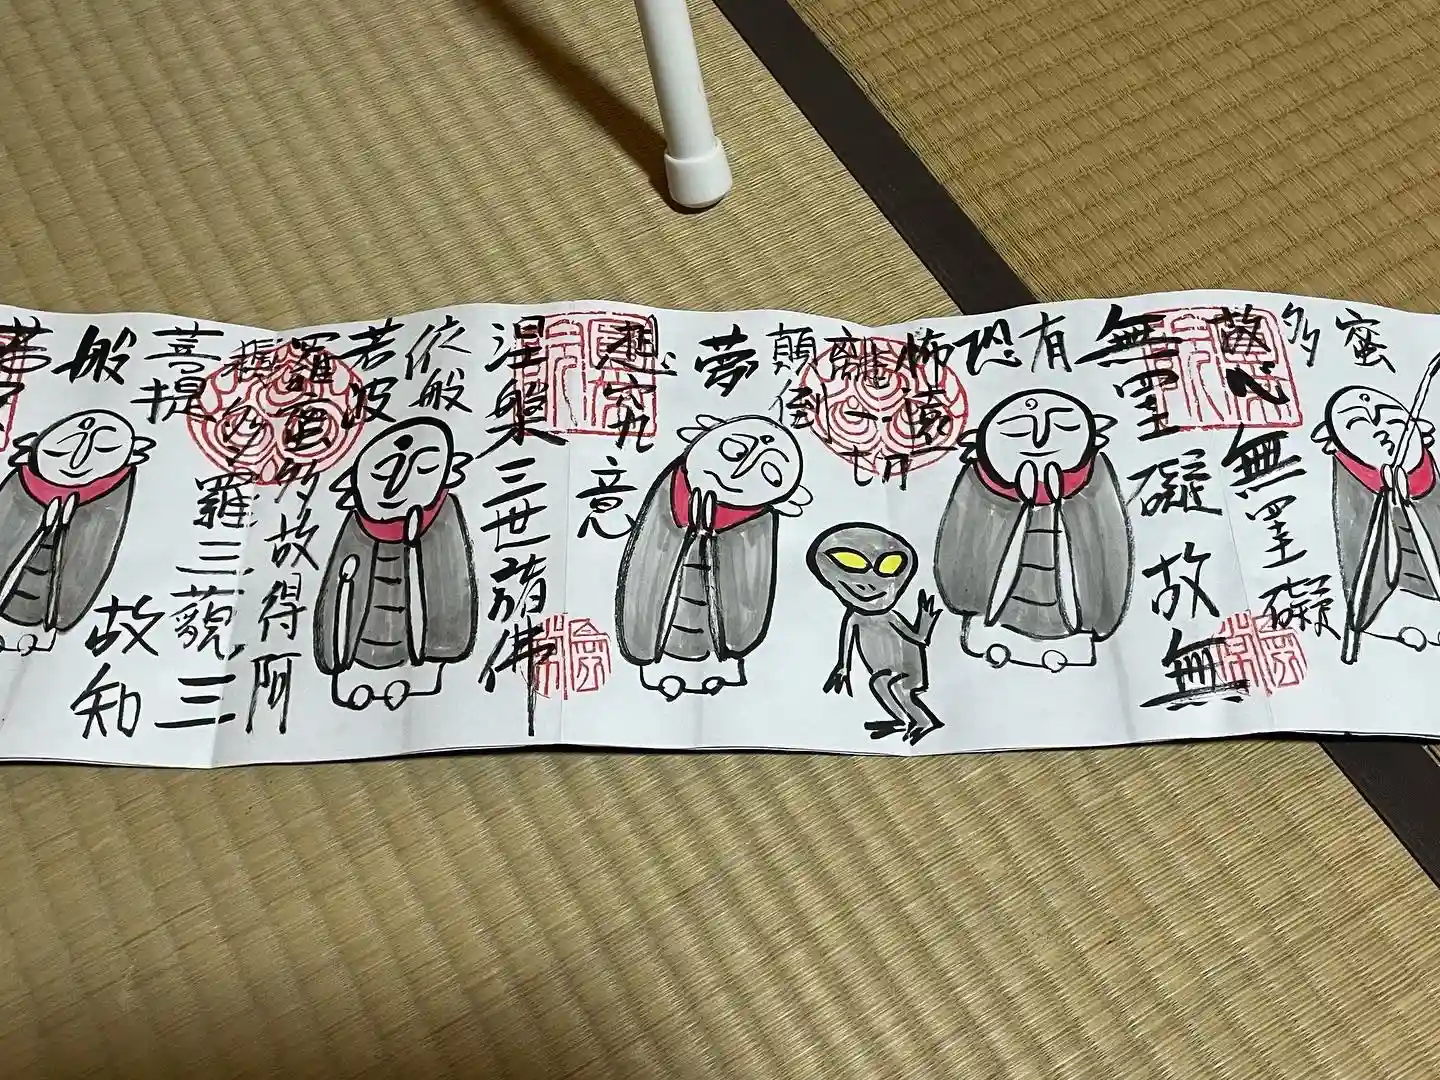 蜜
多
故心無罣礙
無罣礙故無
有
恐
怖遠
離一切
顛倒
夢
想究
意
涅槃三世諸佛
依般
若波
羅蜜多故得阿
耨多羅三藐三
菩提
故知
般